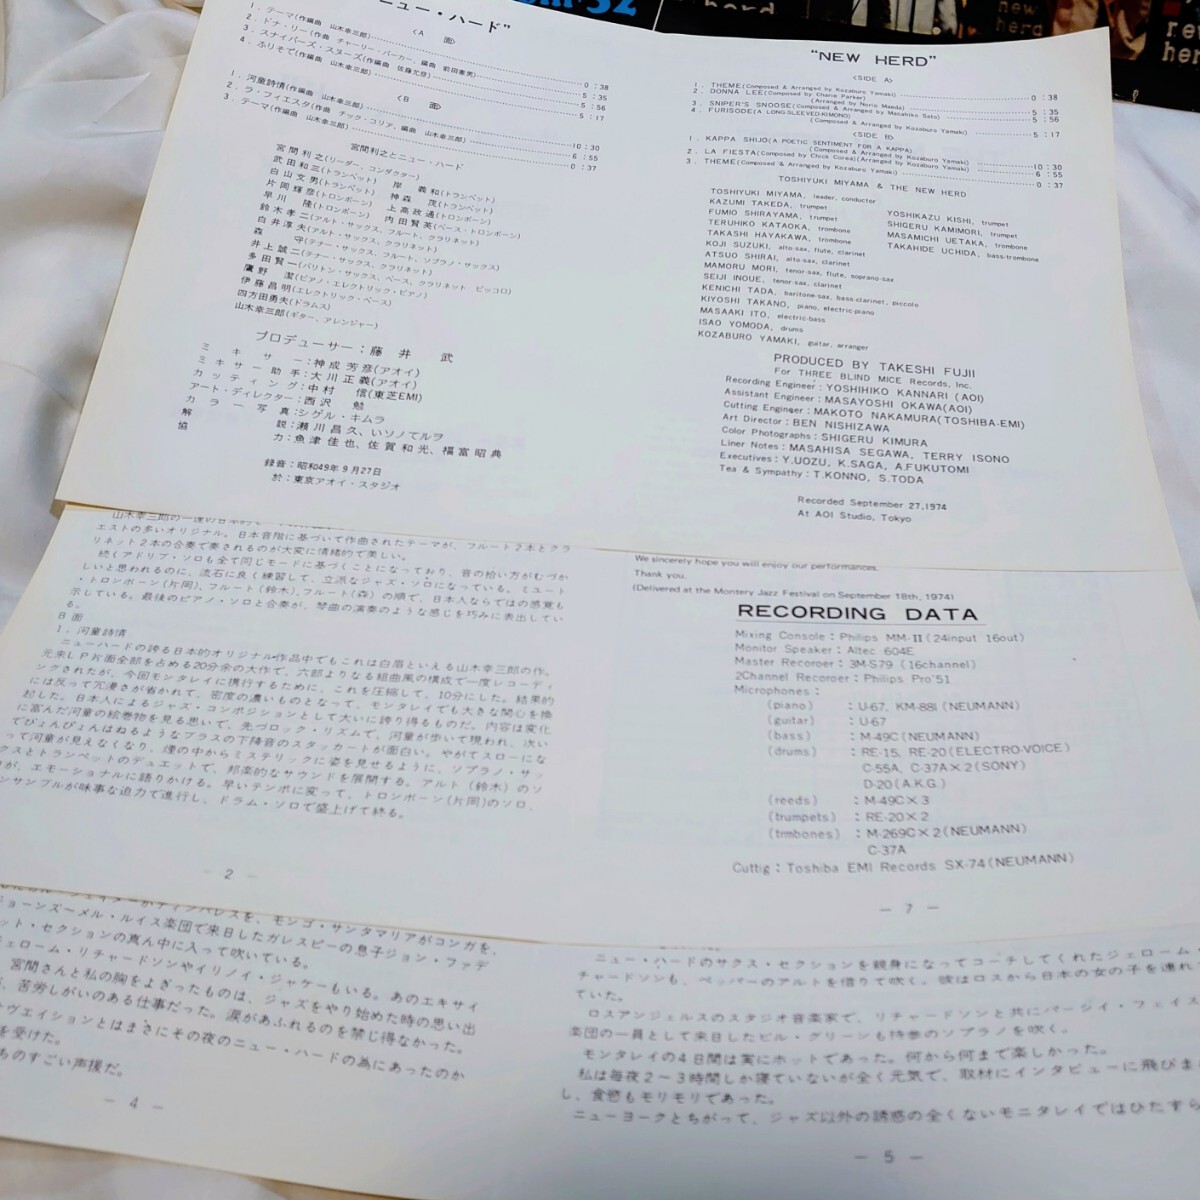 ニュー・ハード”
〈A 面〉
1. テーマ(作編曲 山木幸三郎) 0:38
2. ドナ・リー(作曲 チャーリー・パーカー、編曲 前田憲男) 5:35
3. スナイパーズ・スヌーズ(作編曲 佐藤允彦) 5:56
4. ふりそで(作編曲 山木幸三郎) 5:17
〈B 面〉
1. 河童詩情(作編曲 山木幸三郎) 10:30
2. ラ・フィエスタ(作曲 チック・コリア、編曲 山木幸三郎) 6:55
3. テーマ(作編曲 山木幸三郎) 0:37
宮間利之とニュー・ハード
宮間利之(リーダー、コンダクター)
武田和三(トランペット) 岸 義和(トランペット)
白山文男(トランペット) 神森 茂(トランペット)
片岡輝彦(トロンボーン) 上高政通(トロンボーン)
早川 隆(トロンボーン) 内田賢英(ベース・トロンボーン)
鈴木孝二(アルト・サックス、フルート、クラリネット)
白井淳夫(アルト・サックス、クラリネット)
森 守(テナー・サックス、フルート、ソプラノ・サックス)
井上誠二(テナー・サックス、クラリネット)
多田賢一(バリトン・サックス、ベース、クラリネット ピッコロ)
鷹野 潔(ピアノ・エレクトリック・ピアノ)
伊藤昌明(エレクトリック・ベース)
四方田勇夫(ドラムス)
山木幸三郎(ギター、アレンジャー)
プロデューサー:藤井 武
ミキサー:神成芳彦(アオイ)
ミキサー助手:大川正義(アオイ)
カッティング:中村 信(東芝EMI)
アート・ディレクター:西沢 勉
カラー写真:シゲル・キムラ
解説:瀬川昌久、いソノてルヲ
協力:魚津佳也、佐賀和光、福富昭典
録音:昭和49年9月27日
於:東京アオイ・スタジオ
“NEW HERD”
〈SIDE A〉
1. THEME(Composed & Arranged by Kozaburo Yamaki) 0:38
2. DONNA LEE(Composed by Charie Parker)
(Arranged by Norio Maeda) 5:35
3. SNIPER'S SNOOSE(Composed & Arranged by Masahiko Sato) 5:56
4. FURISODE(A LONG-SLEEVED-KIMONO)
(Composed & Arranged by Kozaburo Yamaki) 5:17
〈SIDE B〉
1. KAPPA SHIJO(A POETIC SENTIMENT FOR A KAPPA)
(Composed & Arranged by Kozaburo Yamaki) 10:30
2. LA FIESTA(Composed by Chica Corea)(Arranged by Kozaburo Yamaki) 6:55
3. THEME(Composed & Arranged by Kozaburo Yamaki) 0:37
TOSHIYUKI MIYAMA & THE NEW HERD
TOSHIYUKI MIYAMA, leader, conductor
KAZUMI TAKEDA, trumpet YOSHIKAZU KISHI, trumpet
FUMIO SHIRAYAMA, trumpet SHIGERU KAMIMORI, trumpet
TERUHIKO KATAOKA, trombone MASAMICHI UETAKA, trombone
TAKASHI HAYAKAWA, trombone TAKAHIDE UCHIDA, bass-trombone
KOJI SUZUKI, alto-sax, flute, clarinet
ATSUO SHIRAI, alto-sax, clarinet
MAMORU MORI, tenor-sax, flute, soprano-sax
SEIJI INOUE, tenor-sax, clarinet
KENICHI TADA, baritone-sax, bass-clarinet, piccolo
KIYOSHI TAKANO, piano, electric-piano
MASAAKI ITO, electric-bass
ISAO YOMODA, drums
KOZABURO YAMAKI, guitar, arranger
PRODUCED BY TAKESHI FUJII
For THREE BLIND MICE Records, Inc.
Recording Engineer: YOSHIHIKO KANNARI (AOI)
Assistant Engineer: MASAYOSHI OKAWA(AOI)
Cutting Engineer: MAKOTO NAKAMURA(TOSHIBA-EMI)
Art Director: BEN NISHIZAWA
Color Photographs: SHIGERU KIMURA
Liner Notes: MASAHISA SEGAWA, TERRY ISONO
Executives: Y.UOZU, K.SAGA, A.FUKUTOMI
Tea & Sympathy: T.KONNO, S.TODA
Recorded September 27,1974
At AOI Studio, Tokyo
エストの多いオリジナル。日本音階に基づいて作曲されたテーマが、フルート2本とクラ
リネット2本の合奏で奏されるのが大変に情緒的で美しい。
続くアドリブ・ソロも全て同じモードに基づくことになっており、音の拾い方がむづか
しいと思われるのに、流石に良く練習して、立派なジャズ・ソロになっている。ミュート
・トロンボーン(片岡)、フルート(鈴木)、フルート(森)の順で、日本人ならではの感覚も
示している。最後のピアノ・ソロと合奏が、琴曲の演奏のような感じを巧みに表出してい
る。
B面
1. 河童詩情
ニューハードの誇る日本的オリジナル作品中でもこれは白眉といえる山木幸三郎の作。
元来LP片面全部を占める20分余の大作で、六部よりなる組曲風の構成で一度レコーディ
ングされたが、今回モンタレイに携行するために、これを圧縮して、10分にした。結果的
には反って冗漫さが省かれて、密度の濃いものとなって、モンタレイでも大きな関心を換
起した。日本人によるジャズ・コンポジションとして大いに誇り得るものだ。内容は変化
に富んだ河童の絵巻物を見る思いで、先づロック・リズムで、河童が歩いて現われ、次い
でぴょんぴょんはねるようなブラスの下降音のスタッカートが面白い。やがてスローにな
って河童が見えなくなり、煙の中からミステリックに姿を見せるように、ソプラノ・サッ
クスとトランペットのデュエットで、邦楽的なサウンドを展開する。アルト(鈴木)のソ
が、エモーショナルに語りかける。早いテンポに変って、トロンボーン(片岡)のソロ、
ンサンブルが味事な迫力で進行し、ドラム・ソロで盛上げて終る。
— 2 —
We sincerely hope you will enjoy our performances.
Thank you.
(Delivered at the Montery Jazz Festival on September 18th, 1974)
RECORDING DATA
Mixing Console: Philips MM-II (24input 16out)
Monitor Speaker: Altec 604E
Master Recoroer: 3M-S79 (16channel)
2Channel Recoroer: Philips Pro'51
Microphones:
(piano) : U-67, KM-88I (NEUMANN)
(guitar) : U-67
(bass) : M-49C (NEUMANN)
(drums) : RE-15, RE-20(ELECTRO-VOICE)
C-55A, C-37A×2 (SONY)
D-20 (A.K.G.)
(reeds) : M-49C×3
(trumpets) : RE-20×2
(trmbones) : M-269C×2 (NEUMANN)
C-37A
Cuttig: Toshiba EMI Records SX-74 (NEUMANN)
— 7 —
ジョーンズ〜メル・ルイス楽団で来日したガレスピーの息子ジョン・ファデ
ット・セクションの真ん中に入って吹いている。
ェローム・リチャードソンやイリノイ・ジャケーもいる。あのエキサイ
宮間さんと私の胸をよぎったものは、ジャズをやり始めた時の思い出
、苦労しがいのある仕事だった。涙があふれるのを禁じ得なかった。
トヴエイションとはまさにその夜のニュー・ハードの為にあったのか
を受けた。
ちのすごい声援だ。
— 4 —
ニュー・ハードのサクス・セクションを親身になってコーチしてくれたジェローム・
チャードソンも、ペッパーのアルトを借りて吹く。彼はロスから日本の女の子を連れ
ていた。
ロスアンジェルスのスタジオ音楽家で、リチャードソンと共にパーシイ・フェイス
楽団の一員として来日したビル・グリーンも持参のソプラノを吹く。
モンタレイの4日間は実にホットであった。何から何まで楽しかった。
私は毎夜2〜3時間しか寝ていないが全く元気で、取材にインタビューに飛びま
し、食慾もモリモリであった。
ニューヨークとちがって、ジャズ以外の誘惑の全くないモニタレイではひたすら
— 5 —
new
herd
herd